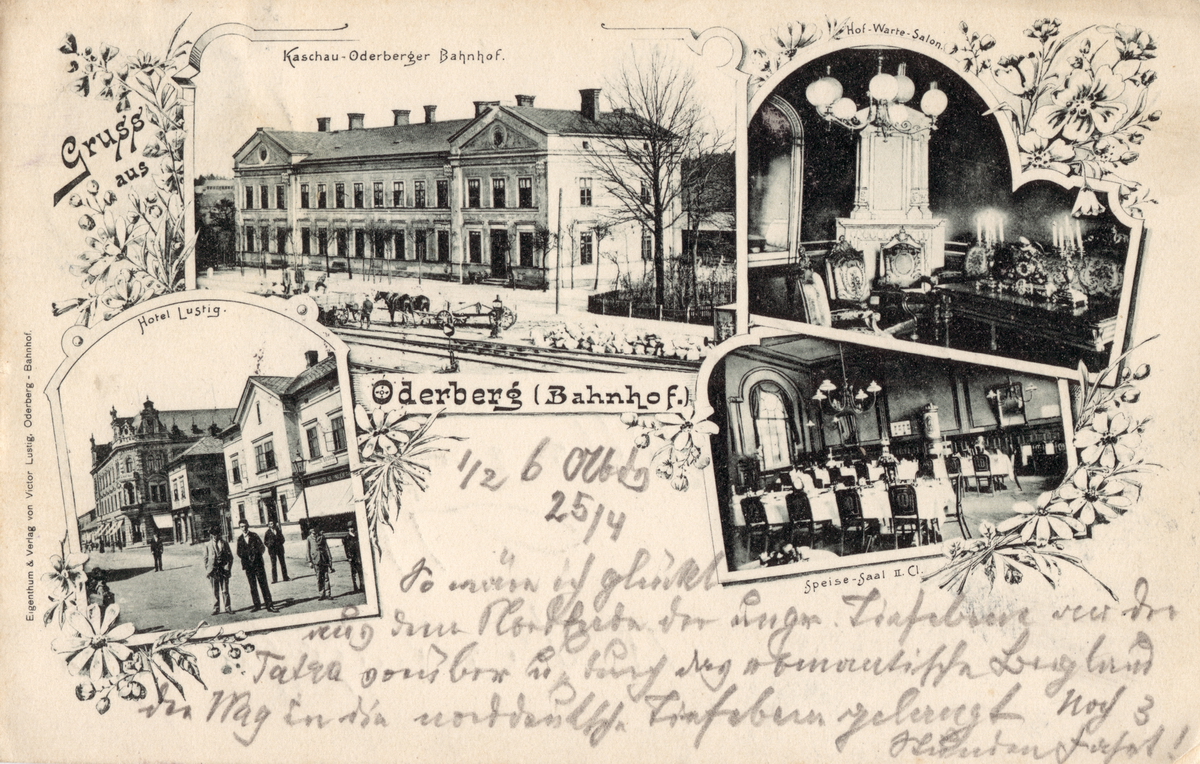 Kaschau-Oderberger Bahnhof.
Hof-Warte-Salon.
Gruss
aus
Hotel Lustig.
Oderberg (Bahnhof.)
Speise-Saal II. Cl.
Eigenthum & Verlag von Victor Lustig, Oderberg-Bahnhof.
1/2 6
25/4
So wäre ich glückl
aus dem Nordende der ungr. Tiefebene an der
Tatra vorüber u. durch das romantische Bergland
der Wag in die norddeutsche Tiefebene gelangt Noch 3
Stunden Fahrt!